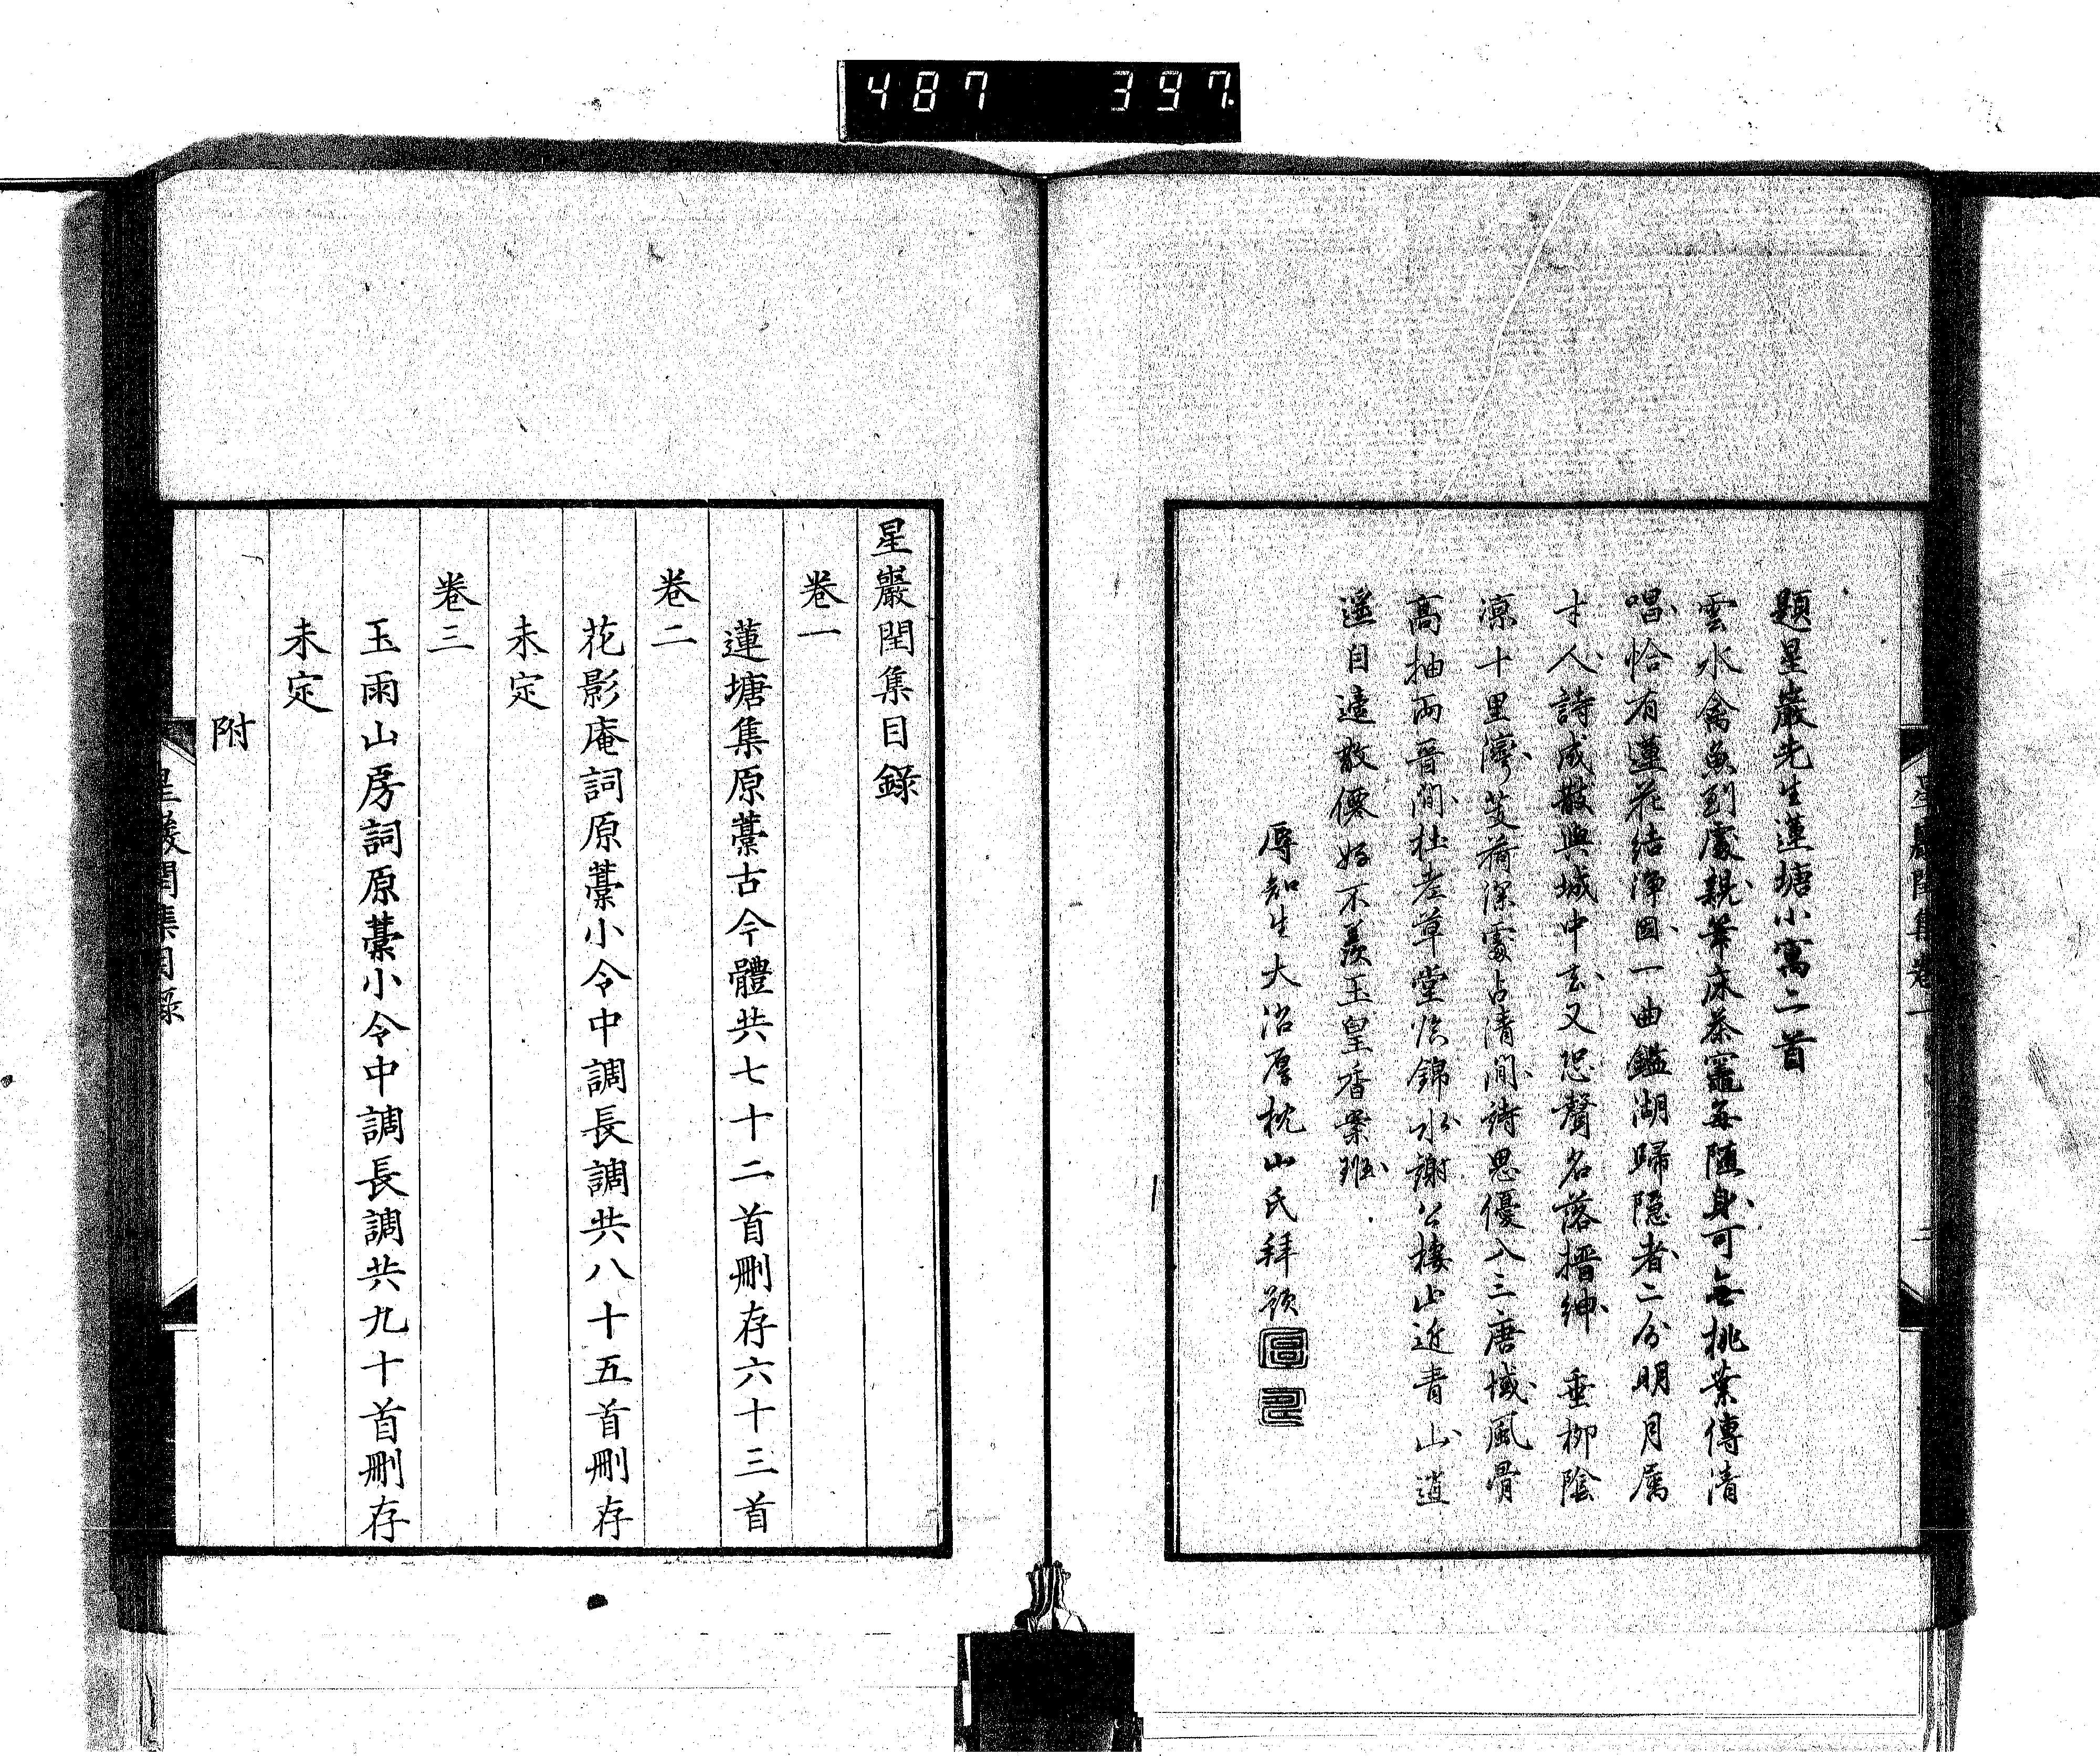 487 397
題星巖先生蓮塘小寓二首
雲水禽魚到處親筆床茶竈每隨身可無桃葉傳清
唱恰有蓮花結淨因一曲鑑湖歸隱者二分明月屬
才人詩成散與城中去又恐聲名落搢紳 垂柳陰
涼十里灣芰荷深處占清閒詩思優入三唐域風骨
高抽兩晉間杜老草堂依錦水謝公棲山近青山逍
遙自遠散僊好不羨玉皇香案班
辱知生大沼厚枕山氏拜題
星巖閏集目錄
卷一
蓮塘集原藁古今體共七十二首刪存六十三首
卷二
花影庵詞原藁小令中調長調共八十五首刪存
未定
卷三
玉雨山房詞原藁小令中調長調共九十首刪存
未定
附
星巖閏集目錄